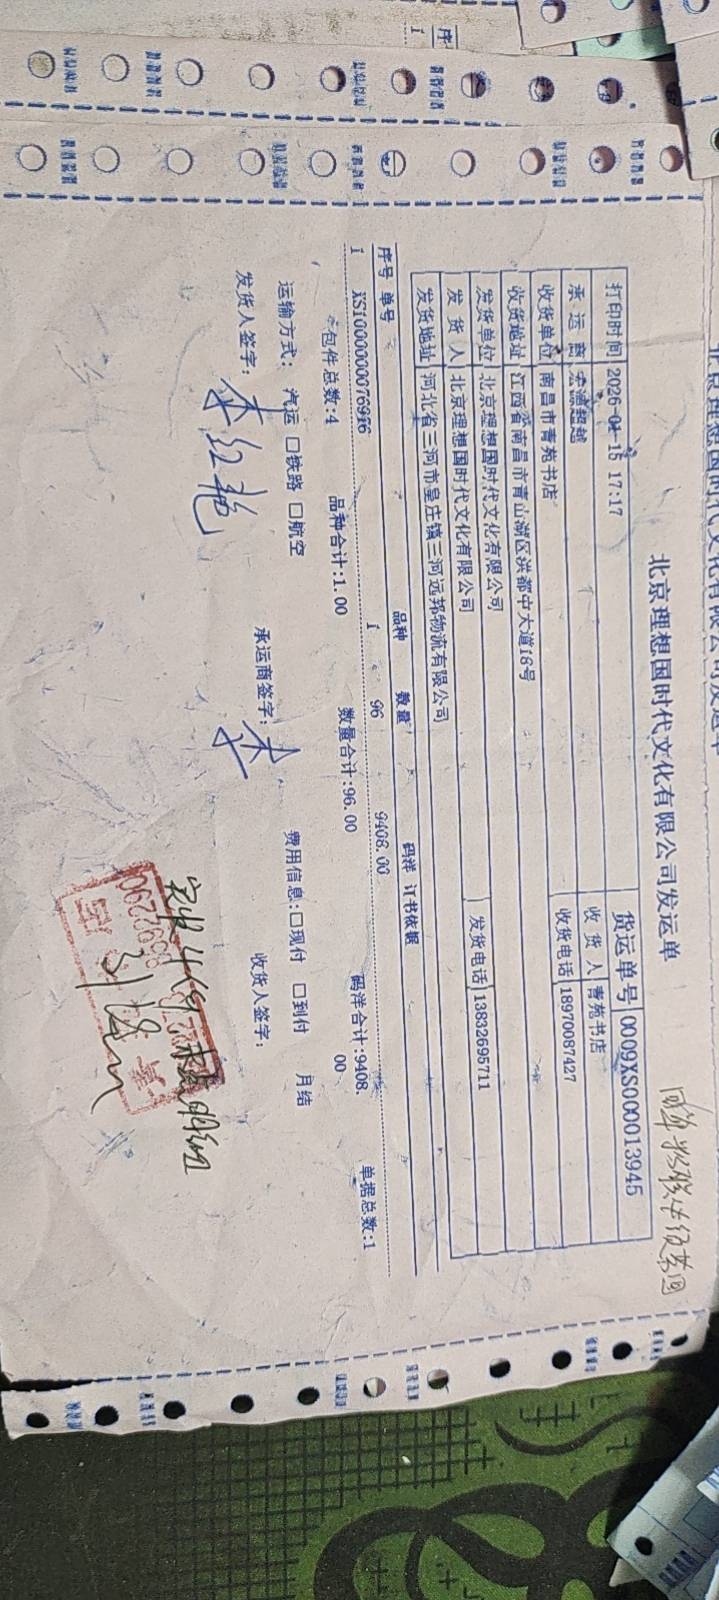 北京理想国时代文化有限公司发运单
货运单号 0009XS000013945
打印时间 2026-01-15 17:17
承运商 宏源超越
收货人 青苑书店
收货单位 南昌市青苑书店
收货电话 18970087427
收货地址 江西省南昌市青山湖区洪都中大道18号
发货单位 北京理想国时代文化有限公司
发货电话 13832695711
发货人 北京理想国时代文化有限公司
发货地址 河北省三河市皇庄镇三河远邦物流有限公司
序号 单号 品种 数量 码洋 订书依据
1 1 96 9408.00
包件总数:4 品种合计:1.00 数量合计:96.00 码洋合计:9408.00 单据总数:1
运输方式: 汽运 □铁路 □航空 费用信息:□现付 □到付 月结
发货人签字: 李红艳 承运商签字: 李 收货人签字: